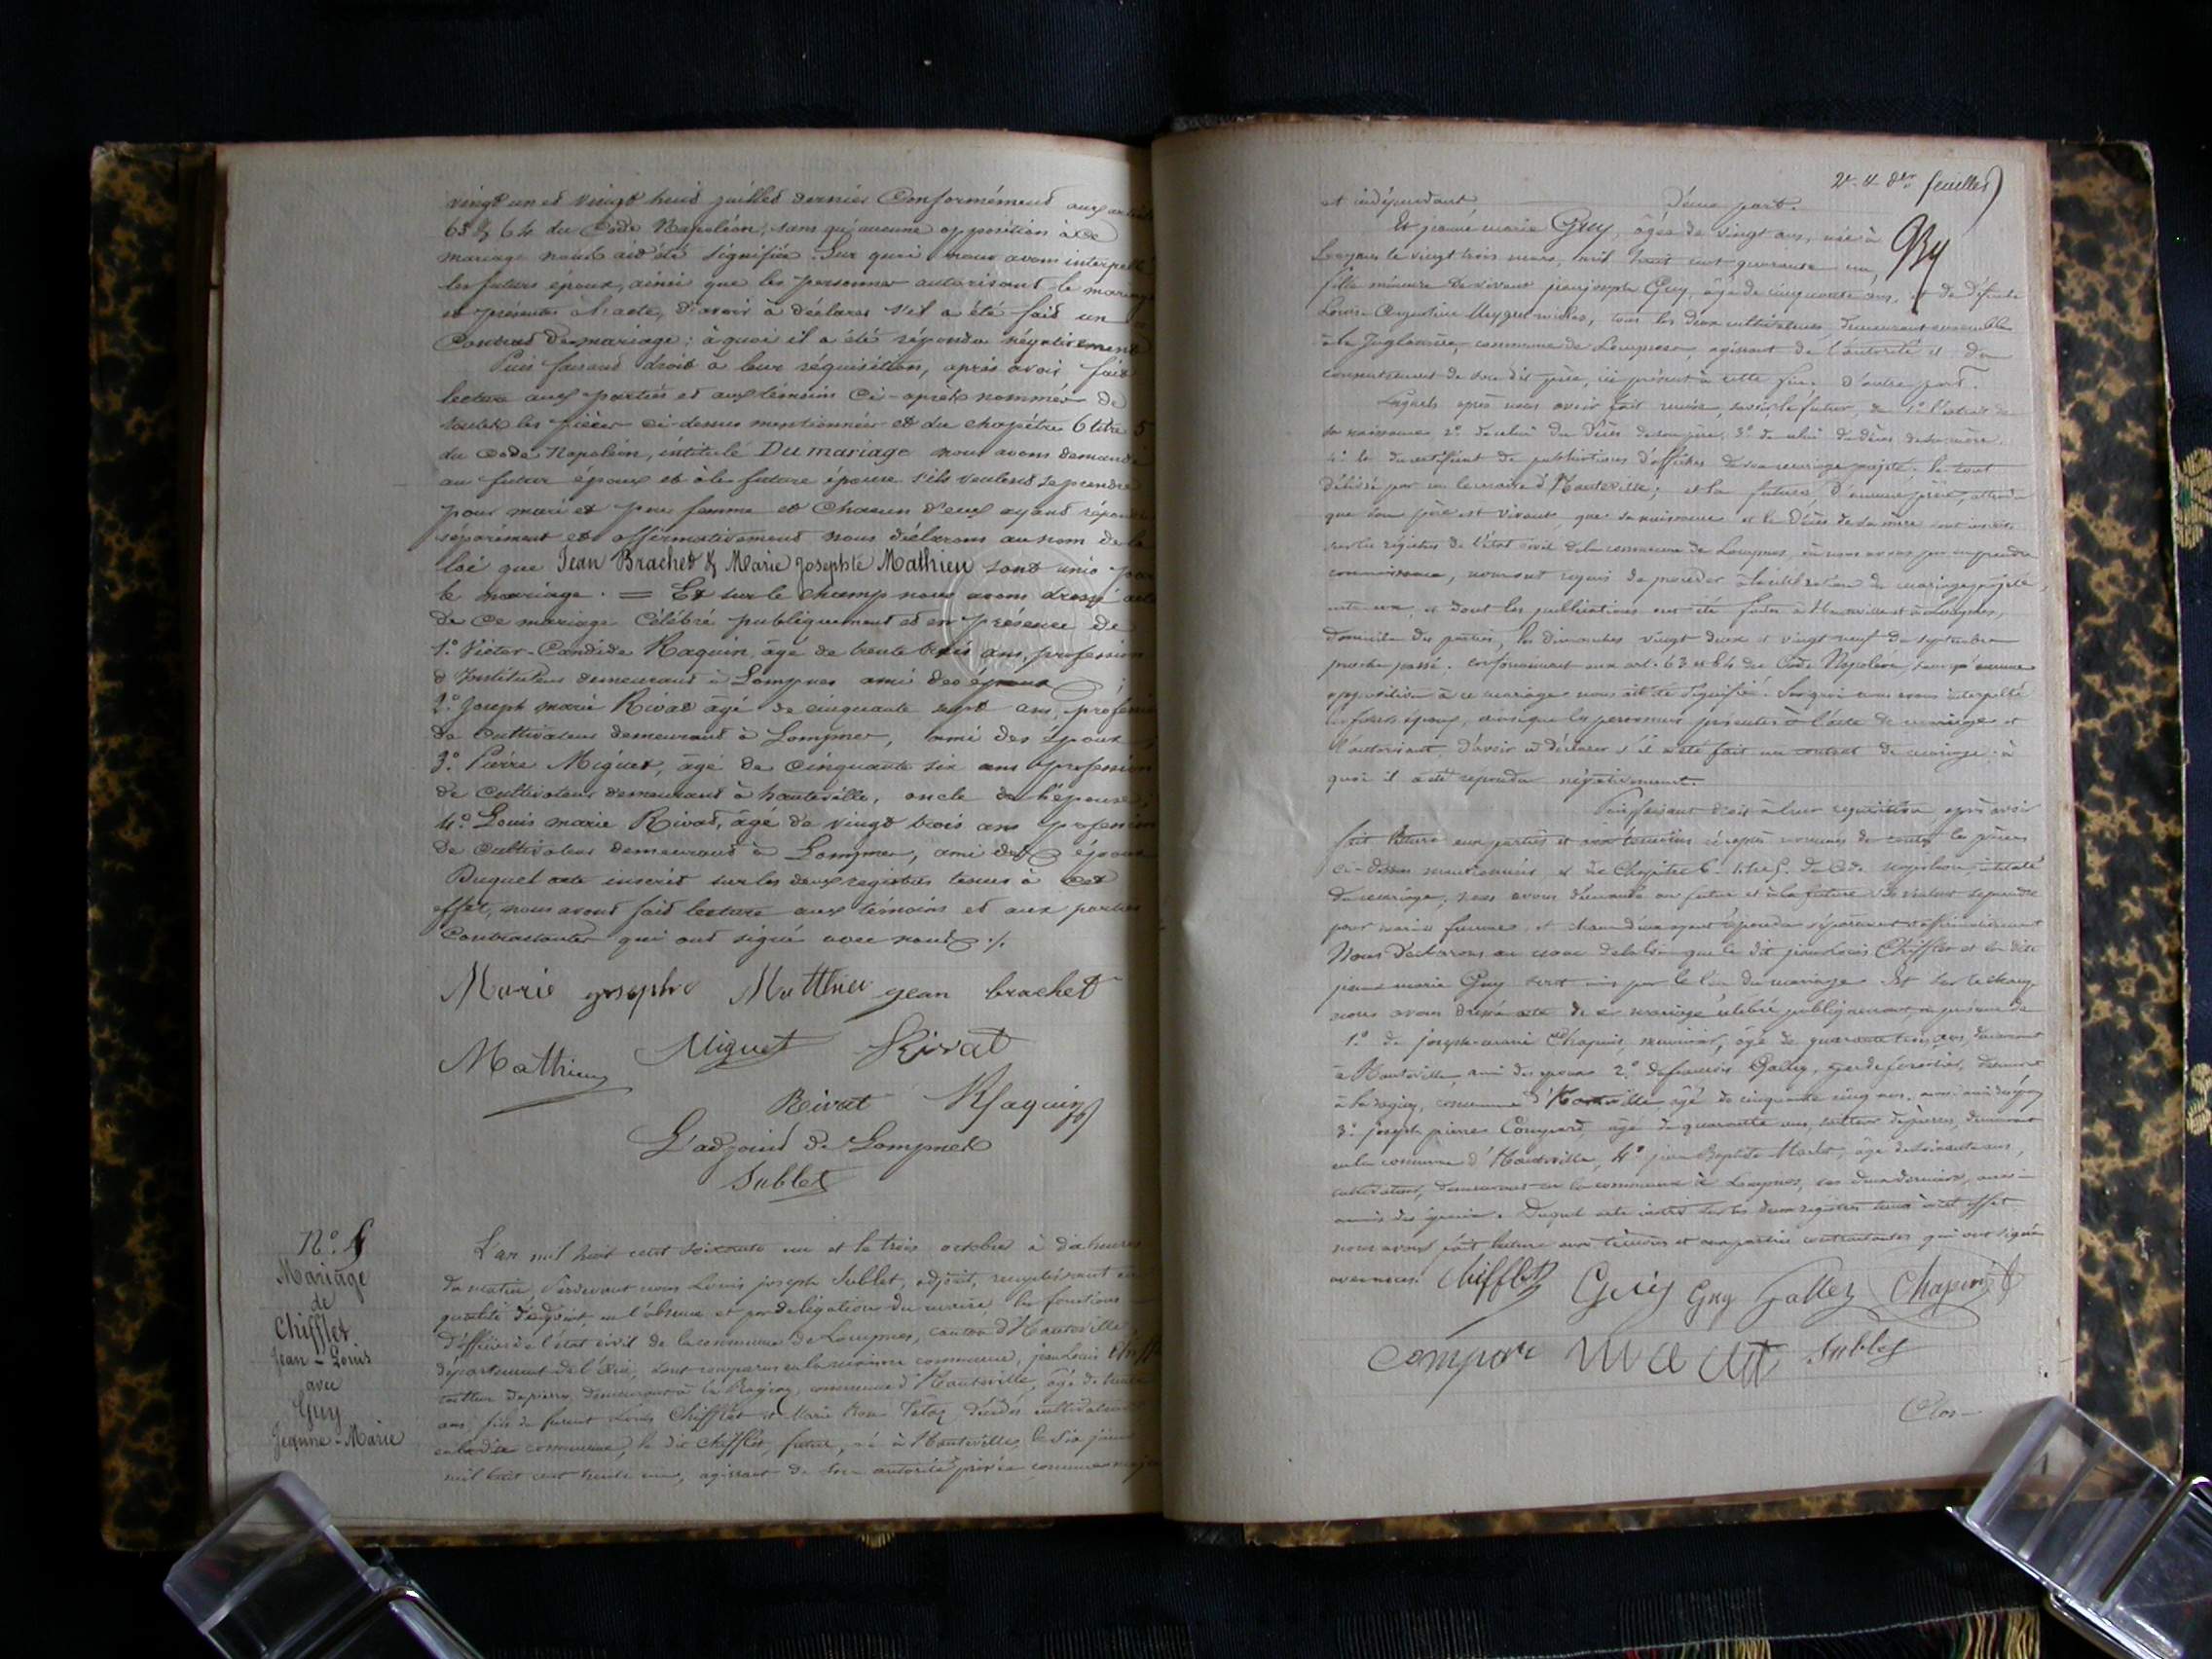 vingt un et vingt huit juillet dernier Conformément aux articles
63 & 64 du Code Napoléon, sans qu'aucune opposition à ce
mariage nous ait été signifiée. Sur quoi nous avons interpellé
les futurs époux, ainsi que les personnes autorisant le mariage
et présentes à l'acte, d'avoir à déclarer s'il a été fait un
Contrat de mariage : à quoi il a été répondu négativement
Puis faisant droit à leur réquisition, après avoir fait
lecture aux parties et aux témoins Ci-après nommés de
toutes les pièces ci-dessus mentionnées et du chapitre 6 titre 5
du Code Napoléon, intitulé Du mariage nous avons demandé
au futur époux et à la future épouse s'ils veulent se prendre
pour mari et pour femme et chacun d'eux ayant répondu
séparément et affirmativement nous déclarons au nom de la
loi que Jean Brachet & Marie Josephte Mathieu sont unis par
le mariage. = Et sur le champ nous avons dressé acte
de ce mariage Célébré publiquement et en présence de
1.º Victor-Candide Raquin, âgé de trente trois ans, profession
d'Instituteur demeurant à Lompnes ami des époux ;
2.º Joseph marie Rivat âgé de cinquante sept ans, profession
de Cultivateur demeurant à Lompnes, ami des époux,
3.º Pierre Miguet, âgé de Cinquante six ans profession
de Cultivateur demeurant à hauteville, oncle de l'épouse ;
4.º Louis marie Rivat, âgé de vingt trois ans profession
de Cultivateur demeurant à Lompnes, ami des époux
Duquel acte inscrit sur les deux registres tenus à cet
effet, nous avons fait lecture aux témoins et aux parties
Contractantes qui ont signé avec nous ./.
Marie josephte Matthieu jean brachet
Mathieu Miguet Rivat
Rivat Raquin
L'adjoint de Lompnes
Sublet
Nº 4
Mariage
de
Chifflet
Jean-Louis
avec
Guy
Jeanne-Marie
L'an mil huit cent soixante un et le trois octobre à dix heures
du matin, Pardevant nous Louis joseph Sublet, adjoint, remplissant en
qualité d'adjoint, en l'absence et par délégation du maire les fonctions
d'officier de l'état civil de la commune de Lompnes, canton d'Hauteville
département de l'Ain, sont comparus en la maison commune, jean Louis Chifflet
tailleur de pierres, demeurant à la commune d'Hauteville, âgé de trente
ans, fils de furent Louis Chifflet et Marie décédés cultivateurs
en la dite commune, le dit Chifflet, futur, né à Hauteville, le six juin
mil huit cent trente un, agissant de son autorité privée comme majeur
2e. & der. feuillet
et indépendant d'une part.
Et jeanne marie Guy, âgée de vingt ans, née à
Lompnes le vingt trois mars, mil huit cent quarante un,
fille mineure de vivant jean joseph Guy, âgé de cinquante ans, et de défunte
Louise tous les deux cultivateurs, demeurant ensemble
à la commune de Lompnes, agissant de l'autorité et du
consentement de son dit père, ici présent à cette fin. D'autre part.
Lesquels après nous avoir fait remise, savoir le futur, de 1º l'extrait de
sa naissance, 2º de celui du décès de son père, 3º de celui du décès de sa mère,
4º du certificat de publications d'affiches de son mariage projeté. le tout
délivré par le maire d'Hauteville ; et la future d'aucune pièce, attendu
que son père est vivant, que sa naissance et le décès de sa mère sont inscrits
sur les registres de l'état civil de la commune de Lompnes, où nous avons pu en prendre
connaissance, nous ont requis de procéder à la célébration du mariage projeté
entre eux, et dont les publications ont été faites à Hauteville et à Lompnes,
domicile des parties, les dimanches vingt deux et vingt neuf du septembre
proche passé. conformément aux art. 63 et 64 du Code Napoléon, sans qu'aucune
opposition à ce mariage nous ait été signifiée. Sur quoi nous avons interpellé
les futurs époux, ainsi que les personnes présentes à l'acte de mariage et
l'autorisant d'avoir à déclarer s'il a été fait un contrat de mariage ; à
quoi il a été répondu négativement.
Puis faisant droit à leur réquisition, après avoir
fait lecture aux parties et aux témoins ci-après nommés de toutes les pièces
ci-dessus mentionnées, et du Chapitre 6. titre 5. du Code Napoléon, intitulé
du mariage, nous avons demandé au futur et à la future s'ils veulent se prendre
pour mari et femme, et chacun d'eux ayant répondu séparément et affirmativement
Nous déclarons au nom de la loi que le dit jean Louis Chifflet et la dite
jeanne marie Guy sont unis par le lien du mariage Et sur le champ
nous avons dressé acte de ce mariage célébré publiquement en présence de
1.º de joseph-marie Chapuis, menuisier, âgé de quarante trois ans, demeurant
à Hauteville, ami des époux 2.º de françois Gallez, garde forestier, demeurant
à la commune d'Hauteville âgé de cinquante cinq ans, aussi ami des époux
3.º joseph pierre âgé de quarante ans, tailleur de pierres, demeurant
en la commune d'Hauteville, 4.º jean Baptiste âgé de soixante ans,
cultivateur, demeurant en la commune de Lompnes, ces deux derniers, aussi
amis des époux. Duquel acte inscrit sur les deux registres tenus à cet effet
nous avons fait lecture aux témoins et aux parties contractantes qui ont signé
avec nous. Chifflet Guy Guy Gallez Chapuis
Sublet
Clos